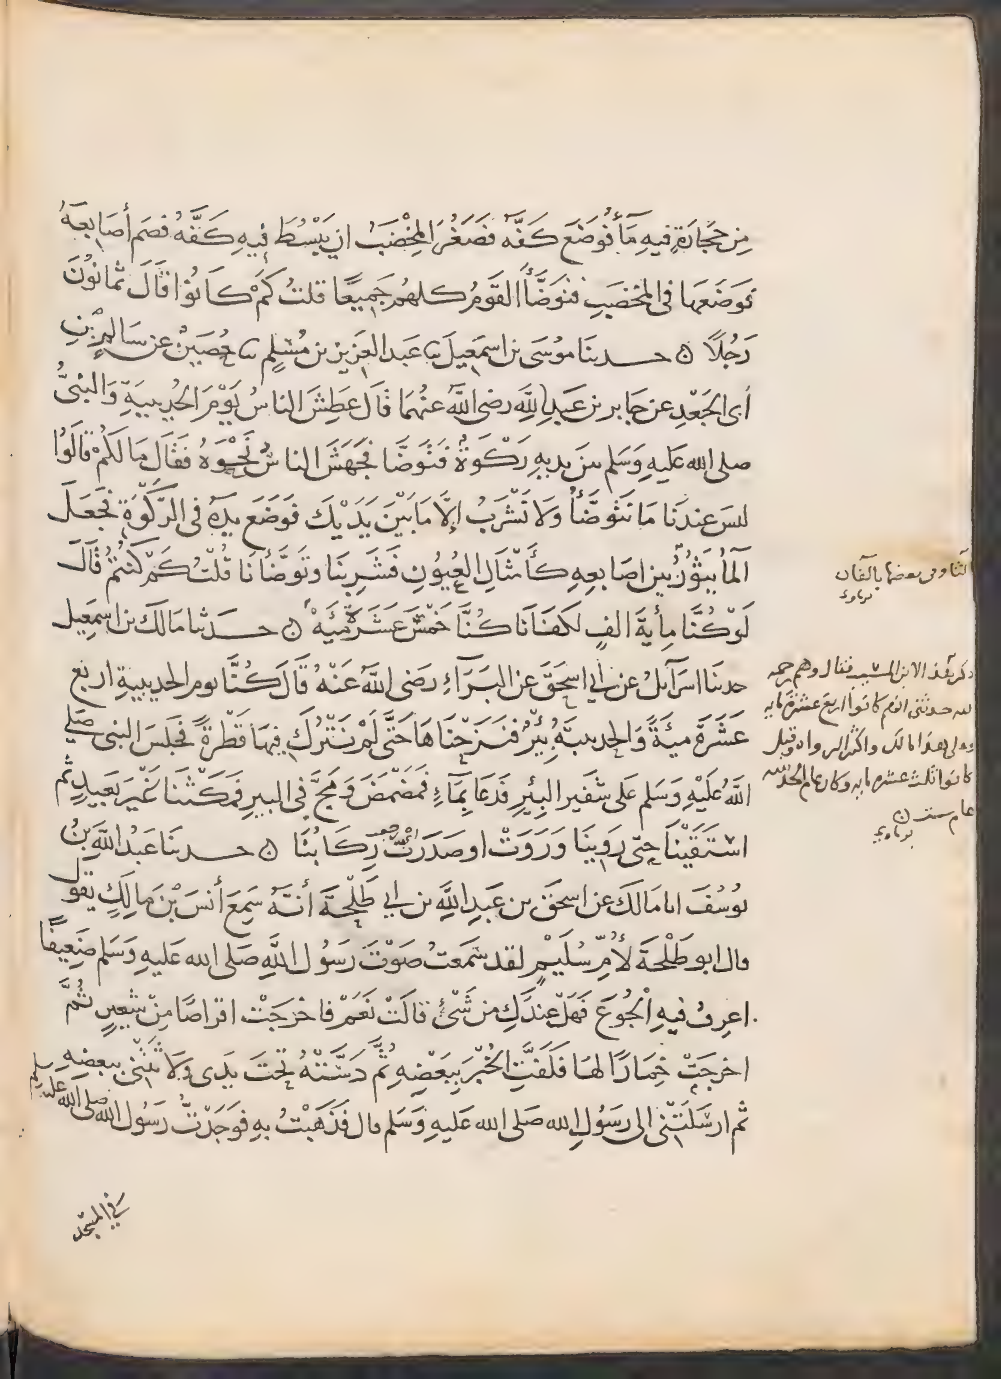 مِن حِجَارَةٍ فيهِ مَآءٌ فوَضَعَ كَفَّهُ فصَغُرَ المِخْضَبُ ان يَبْسُطَ فيهِ كَفَّهُ فضَم أصَابِعَهُ
فوَضَعَها فى المخضَبِ فتَوَضَّأَ القَومُ كلهُم جَميعًا قلتُ كَمْ كَانُوا قَالَ ثمانُونَ
رَجُلًا ۞ حدثنا موُسَى بن اسمعِيلَ ثنا عبد العَزيز بن مُسْلِم ثنا حُصَينٌ عن سَالِمِ بْنِ
أبى الجَعْدِ عن جَابر بن عَبدِ اللَّهِ رضى اللَّهُ عنهُمَا قَالَ عَطِشَ الناسُ يَوْمَ الحُديبِيَةِ وَالنبىُّ
صلى الله عَليهِ وَسَلم بينَ يديهِ رَكْوَةٌ فتَوَضَّا فجَهَشَ الناسُ نَحْوَهُ فقَالَ مَا لَكُمْ قالَوُا
ليسَ عندَنَا مَا نتَوضَّأُ وَلَا نَشْرَبُ إلَّا مَا بَيْنَ يَدَيْكَ فوَضَعَ يدَهُ فى الرَّكْوَةِ فجَعَلَ
المآءُ يَثُوْرُ بين اصَابِعِهِ كَأَمْثالِ العُيُونِ فشَرِبنَا وتوَضَّأنَا قُلْتُ كَمْ كُنْتُمْ قَالَ
لَوْ كُنَّا مِأيةَ الفٍ لكَفَانَا كُنَّا خَمْسَ عَشَرَةَ مِئَه ۞ حدثنا مَالك بن اسمعِيل
حدثنا اسرآئِلُ عن أبي اسحَقَ عن البَرَآءِ رَضى اللهُ عَنْهُ قَالَ كُنَّا يوم الحديبيةِ اربع
عَشَرَةَ مِيَةً وَالحديبيَّةُ بِئْرٌ فنَزحْنَاهَا حَتَّى لَمْ نتْرُك فيهَا قَطْرةً فجَلَسَ النبى صَلى
اللَّهُ عَلَيْهِ وَسَلم عَلى شفيرِ البِئرِ فَدَعَا بِمَآءٍ فمَضْمَضَ وَمَجَّ فى البيرِ فمَكثْنَا غَيْرَ بَعِيدٍ ثم
استَقَيْنَا حتّى رَوِينَا وَرَوَتْ او صَدَرَتْ رِكَابُنَا ۞ حدثنا عَبْدُ اللَّهِ بنُ
يوُسُفَ انا مَالك عن اسحَقَ بن عَبدِ اللَّهِ بن ابي طَلْحَةَ أنَّهُ سَمِعَ أنَسَ بْنَ مَالِكٍ يقول
قال ابو طَلْحَةَ لأُمِّ سُلَيْمٍ لقد سَمعتُ صَوْتَ رَسُول اللَّهِ صَلى الله عَليهِ وَسَلم ضَعِيفًا
اعرِفُ فيهِ الْجُوعَ فهَل عِندَكِ مِن شَىْءٍ قالَتْ نعَمْ فاخرَجَتْ اقراصًا مِنْ شَعِيرٍ ثُمَّ
اخرَجَتْ خِمَارًا لهَا فَلَفَّتِ الخُبْزَ بِبَعْضِهِ ثُمَّ دَسَّتْهُ تحْتَ يَدِى وَلَاثَتْنِى ببعضِهِ
ثم ارسَلَتْنِى الى رَسُولِ الله صَلى الله عَليهِ وَسَلم قال فذَهَبْتُ بِهِ فوَجَدْتُ رَسُول الله صلى الله عليه وسلم
في المسجد
وفى بعضها بالفآ
برماوى
فقال وهم رحمه
الله حدثنى انهم كانوا اربع عشرة مايه
كانوا ثلث عشره مايه وكان عام الحديبيه
عام ست ۞
برماوى